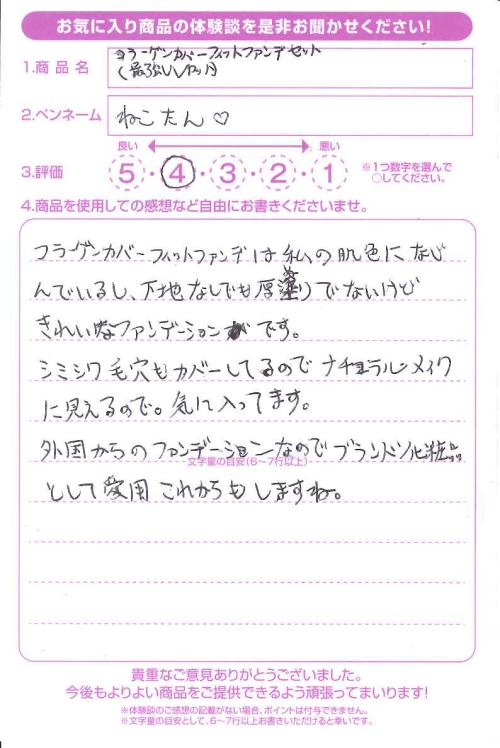 お気に入り商品の体験談を是非お聞かせください!
1.商品名
コラーゲンカバーフィットファンデセット
2.ペンネーム
ねこたん♡
良い 悪い
3.評価
5・4・3・2・1
※1つ数字を選んで
○してください。
4.商品を使用しての感想など自由にお書きくださいませ。
コラーゲンカバーフィットファンデは私の肌色になじ
んでいるし、下地なしでも厚塗りでないけど
きれいなファンデーションです。
シミシワ毛穴もカバーしてるのでナチュラルメイク
に見えるので。気に入ってます。
外国からのファンデーションなのでブランド化粧品
文字量の目安(6〜7行以上)
として愛用これからもしますね。
貴重なご意見ありがとうございました。
今後もよりよい商品をご提供できるよう頑張ってまいります!
※体験談のご感想の記載がない場合、ポイントは付与できません。
※文字量の目安として、6〜7行以上お書きいただけると幸いです。